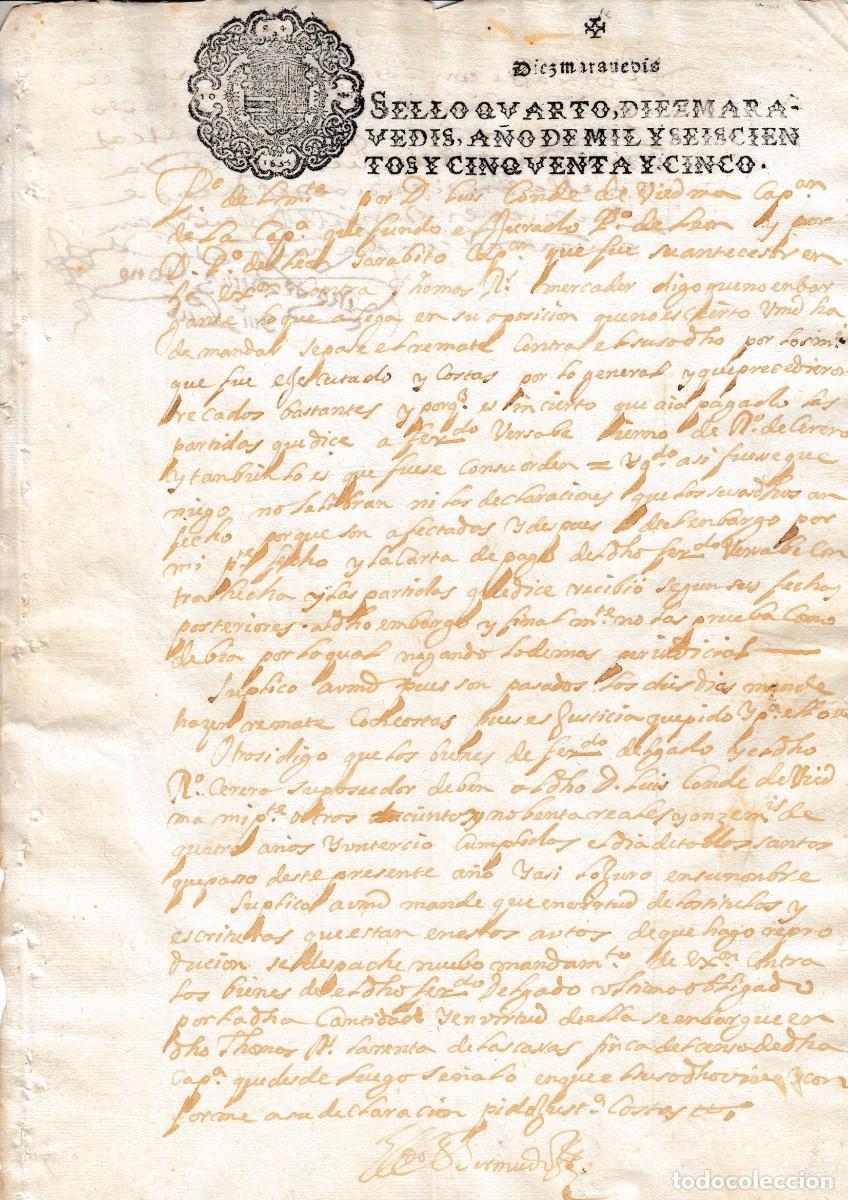 Diez maravedis
SELLO QVARTO, DIEZ MARA-
VEDIS, AÑO DE MIL Y SEISCIEN
TOS Y CINQVENTA Y CINCO.
1654
Pº de por D. Luis Conde de Viedma Capan
de la Capa. que fundo el Jurado Pº de Leon y por
D. Pº de Leon Garabito Capan que fue su antecesor en
la exon contra thomas Rs. mercader digo que no enbar
gante lo que alega en su oposicion que no es cierto Vmd ha
de mandar se pase el remate contra el susodho por los mrs
que fue ejecutado y costas por lo general y que precedieron
recados bastantes y porq. es incierto que aia pagado las
partidas que dice a ferdo Versabe hierno de Nº. de Cerero
y tanbien lo es que fuese con su orden = y qdo asi fuese que
niego no le libran ni las declaraciones que los susodhos an
fecho porque son afectados y despues del enbargo por
mi pte fecho y la carta de pago del dho ferdo Versabe con
trahecha y las partidas que dice recibio segun sus fechas
posteriores al dho embargo y final mte no las prueba como
debia por lo qual negando lo demas perjudicial
Suplico a vmd pues son pasados los dias mande
hazer remate con costas pues es Justicia que pido y pa ello
Otrosi digo que los bienes de ferdo delgado y el dho
Nº. Cerero su poseedor deben al dho D. Luis Conde de Vied
ma mi pte otros y nobenta reales y onze mrs de
quatro años y un tercio cumplidos el dia de todos santos
que passo deste presente año y asi lo Juro en su nonbre
Suplico a vmd mande que en virtud de los titulos y
escrituras que estan en estos autos de que hago repro
ducion se despache nuebo mandamto de exon contra
los bienes de el dho ferdo Delgado ultimo obligado
por la dha cantidad y en virtud de ella se enbargue en
dho Thomas Rs. la renta de las casas finca del censo de dha
Capa. que desde luego señalo en que el susodho vive y con
forme a su declaracion pido Justa costas